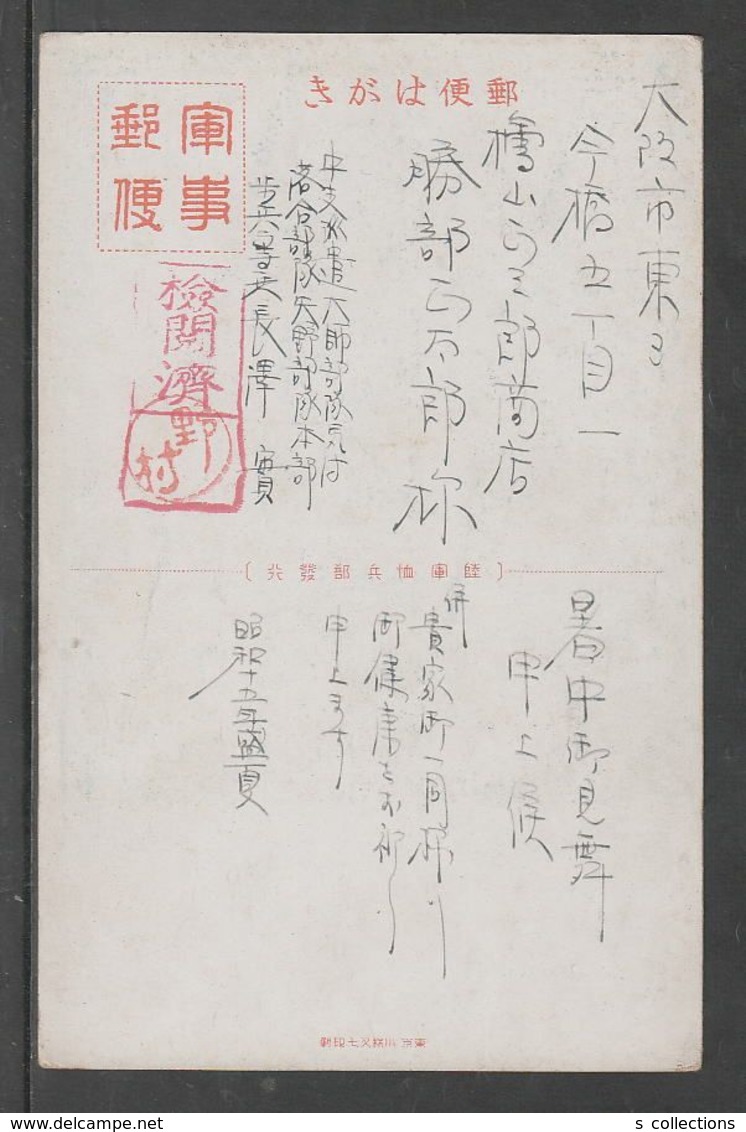 郵便はがき
軍事
郵便
檢閲濟
野村
大阪市東区
今橋五丁目一
山正三郎商店
勝部正太郎様
中支派遣大部隊気付
落合部隊矢野部隊本部
歩兵一等兵長澤實
(陸軍恤兵部發行)
暑中御見舞
申上候
併
貴家御一同様ノ
御健康をお祈り
申上ます
昭和十五年盛夏
東京 川瀬又七印刷
s collections